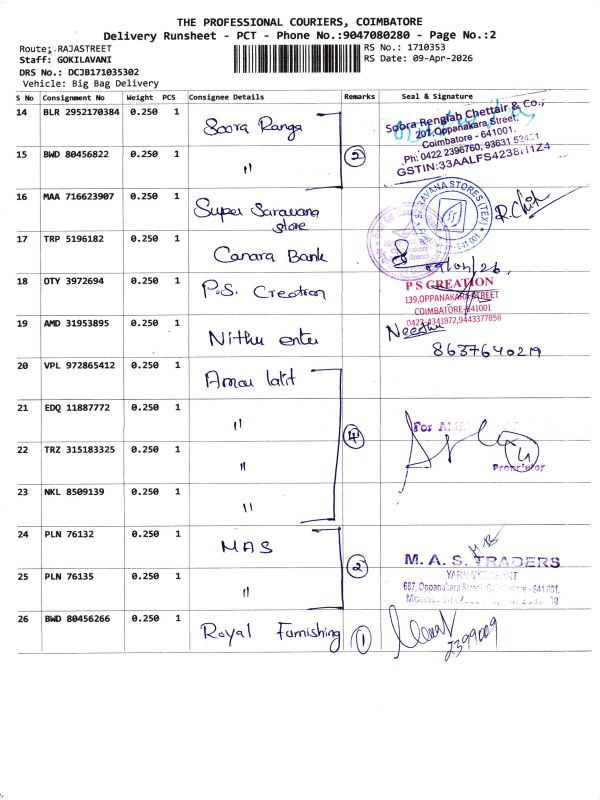 THE PROFESSIONAL COURIERS, COIMBATORE
Delivery Runsheet - PCT - Phone No.:9047080280 - Page No.:2
Route: RAJASTREET
RS No.: 1710353
Staff: GOKILAVANI
RS Date: 09-Apr-2026
DRS No.: DCJB171035302
Vehicle: Big Bag Delivery
S No Consignment No Weight PCS Consignee Details Remarks Seal & Signature
14 BLR 2952170384 0.250 1 Soora Ranga
15 BWD 80456822 0.250 1 " 2
Soora Rengiah Chettair & Co.,
207, Oppanakara Street,
Coimbatore - 641001.
Ph: 0422 2396760, 93631
GSTIN:33AALFS4238H1Z4
16 MAA 716623907 0.250 1 Super Saravana store
SARAVANA STORES (TEX)
17 TRP 5196182 0.250 1 Canara Bank
18 OTY 3972694 0.250 1 P.S. Creation
P S CREATION
139,OPPANAKARA STREET
COIMBATORE-641001
0423-4341872,9443377858
19 AMD 31953895 0.250 1 Nithu enter
8637640219
20 VPL 972865412 0.250 1
21 EDQ 11887772 0.250 1 "
22 TRZ 315183325 0.250 1 " 4
For
4
Proprietor
23 NKL 8509139 0.250 1 "
24 PLN 76132 0.250 1 MAS
25 PLN 76135 0.250 1 " 2
M. A. S. TRADERS
YARN MERCHANT
687, Oppanakara Street, Coimbatore - 641 001.
26 BWD 80456266 0.250 1 Royal Furnishing 1
2399009